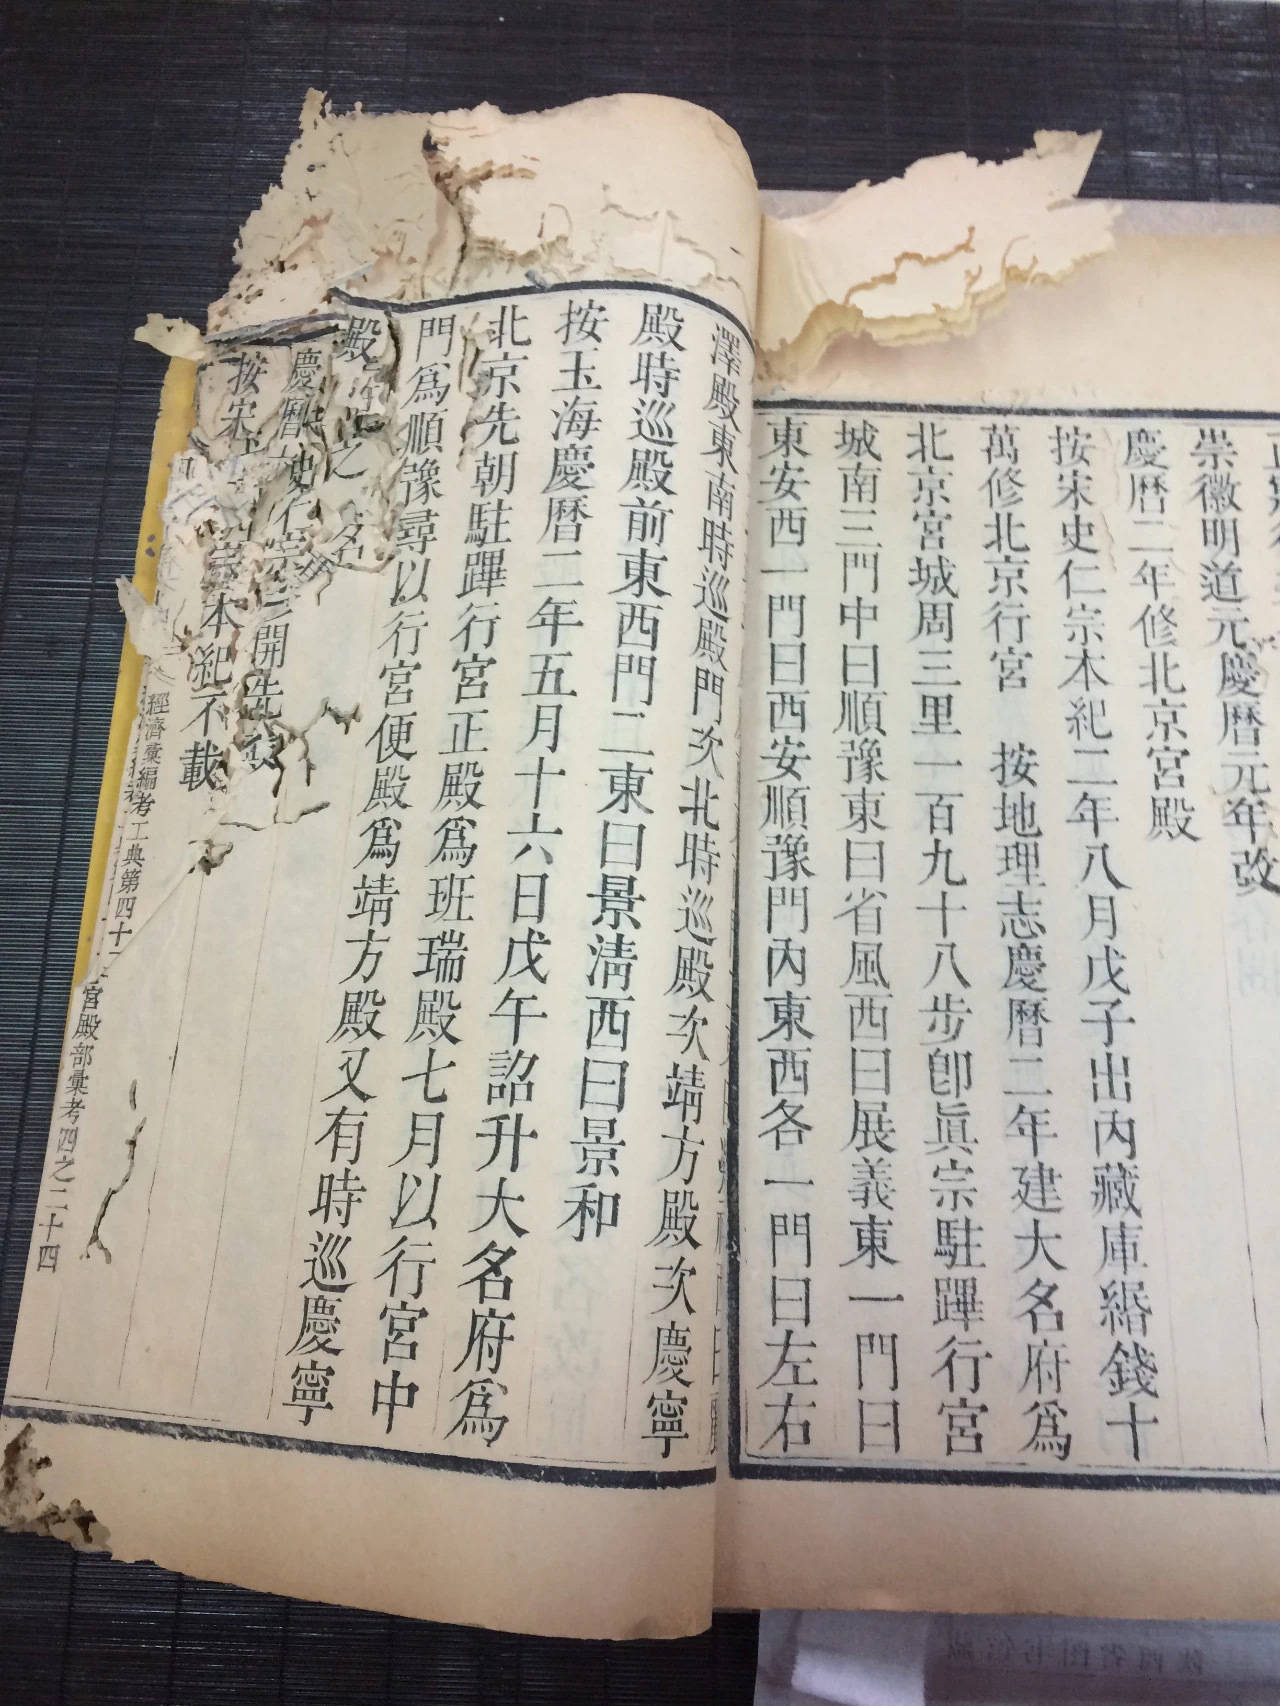 崇徽明道元慶曆元年改
慶曆二年修北京宮殿
按宋史仁宗本紀二年八月戊子出內藏庫緡錢十
萬修北京行宮　按地理志慶曆二年建大名府爲
北京宮城周三里一百九十八步卽眞宗駐蹕行宮
城南三門中曰順豫東曰省風西曰展義東一門曰
東安西一門曰西安順豫門內東西各一門曰左右
澤殿東南時巡殿門次北時巡殿次靖方殿次慶寧
殿時巡殿前東西門二東曰景清西曰景和
按玉海慶曆二年五月十六日戊午詔升大名府爲
北京先朝駐蹕行宮正殿爲班瑞殿七月以行宮中
門爲順豫尋以行宮便殿爲靖方殿又有時巡慶寧
殿之名
慶曆開先
按宋本紀不載
經濟彙編考工典第四十 宮殿部彙考四之二十四